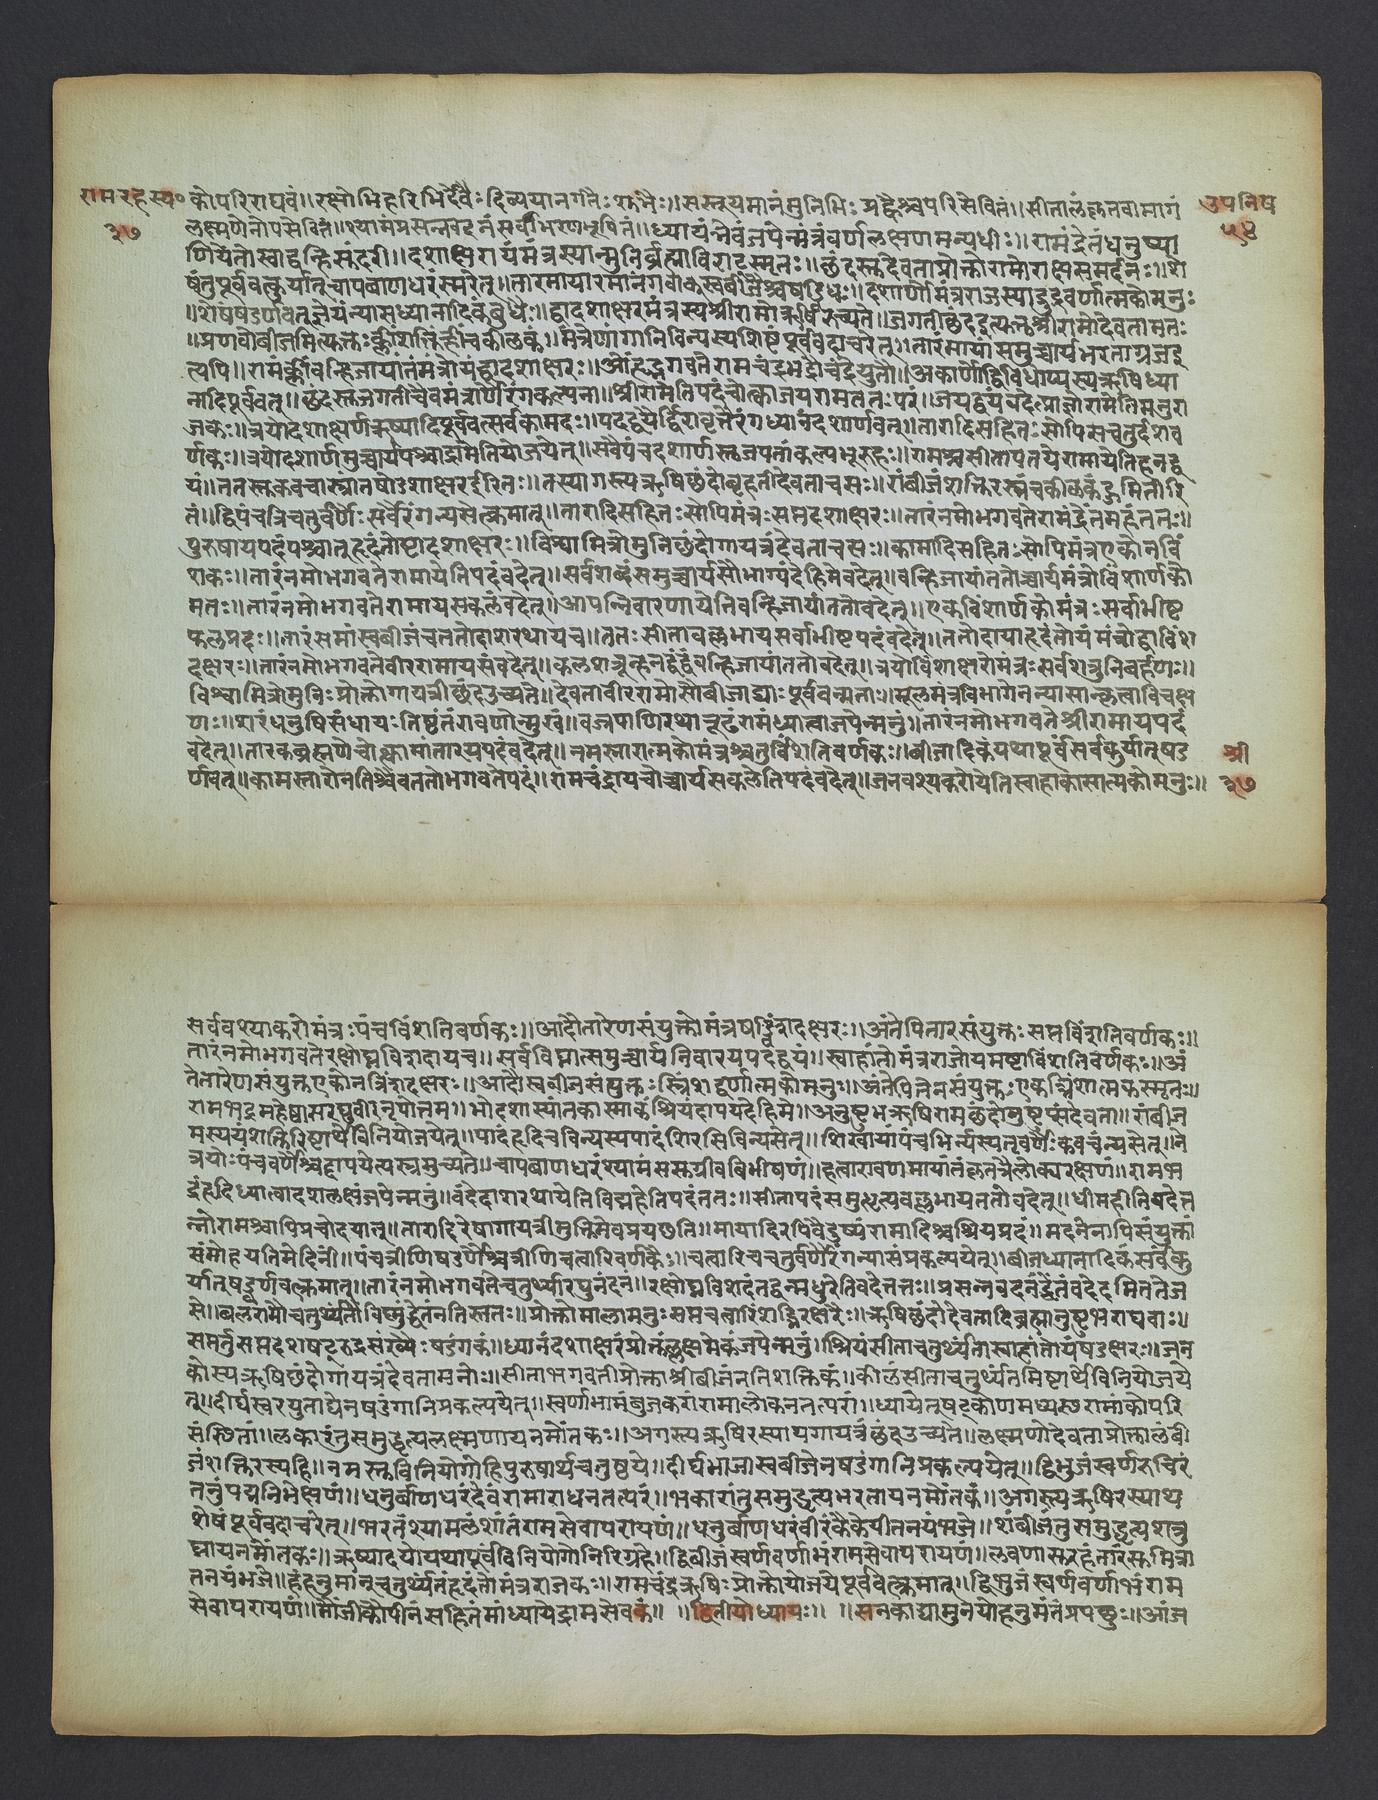 रामरहस्य॰ कोपरिराघवं॥रक्षोभिर्हरिभिर्देवैःदिव्ययानगतैःशुभैः॥सस्तूयमानंमुनिभिःप्रह्वैश्चपरिसेवितं॥सीतालंकृतवामागं उपनिष
३७ लक्ष्मणेनोपसेवितं॥श्यामंप्रसन्नवदनंसर्वाभरणभूषितं॥ध्यायंन्नेवंजपेन्मंत्रंवर्णलक्षमनन्यधीः॥रामंङेंतंधनुष्पा ५४
णयेंतोस्वाहुन्हिसुंदरी॥दशाक्षरोयंमंत्रस्यान्मुनिर्ब्रह्माविराट्स्मृतः॥छंदस्तुदेवताप्रोक्तोरामोराक्षसमर्दनः॥शे
षंतुपूर्ववत्कुर्यात्चापबाणधरंस्मरेत्॥तारमायारमानंगवाक्स्वबीजैश्चषड्विधः॥दशार्णोमंत्रराजस्याद्रुद्रवर्णात्मकोमनुः
॥शेषंषडर्णवत्ज्ञेयंन्यासध्यानादिकंबुधैः॥द्वादशाक्षरमंत्रस्यश्रीरामोऋषिरुच्यते॥जगतीछंदइत्युक्तंश्रीरामोदेवतामतः
॥प्रणवोबीजमित्युक्तःक्लींशक्तिर्ह्रींचकीलकं॥मंत्रेणांगानिविन्यस्यशिष्टंपूर्ववदाचरेत्॥तारंमायांसमुच्चार्यभरताग्रजइ
त्यपि॥रामंक्लींवन्हिजायांतंमंत्रोयंद्वादशाक्षरः॥ओंहृद्भगवतेरामचंद्रभद्रौचङेयुतौ॥अर्काणोद्विविधोप्यस्यऋषिध्या
नादिपूर्ववत्॥छंदस्तुजगतीचैवमंत्रार्णैरंगकल्पना॥श्रीरामेतिपदंचोत्काजयरामततःपरं॥जयद्वयंवदेत्प्राज्ञोरामेतिमनुरा
जकः॥त्रयोदशाक्षर्णऋष्यादिपूर्ववत्सर्वकामदः॥पदद्वयैर्द्विरावृत्तैरंगध्यानंदशार्णवत्॥तारादिसहितःसोपिसचतुर्दशव
र्णकः॥त्रयोदशार्णमुच्चार्यपश्चाद्रामेतियोजयेत्॥सवैपंचदशार्णस्तुजपतांकल्पभूरुहः॥रामश्चसीतापतयेरामायेतिहनद्व
यं॥ततस्तुकवचास्त्रांतषोडशाक्षरईरितः॥तस्यागस्त्यऋषिछंदोबृहतीदेवताचसः॥रांबीजंशक्तिरस्त्रंचकीलकंहुमितीरि
तं॥द्विपंचत्रिचतुर्वर्णैःसर्वैरंगंन्यसेत्क्रमात्॥तारादिसहितःसोपिमंत्रःसप्तदशाक्षरः॥तारंनमोभगवतेरामंङेंतंमहंततः॥
पुरुषायपदंपश्चात्हृदंतोष्टादशाक्षरः॥विश्वामित्रोमुनिछंदोगायत्रंदेवताचसः॥कामादिसहितःसोपिमंत्रएकोनविं
शकः॥तारंनमोभगवतेरामायेतिपदंवदेत्॥सर्वशब्दंसमुच्चार्यसौभाग्यंदेहिमेवदेत्॥वन्हिजायांततोच्चार्यमंत्रोविंशार्णको
मतः॥तारंनमोभगवतेरामायसकलंवदेत्॥आपन्निवारणायेतिवन्हिजायांततोवदेत्॥एकविंशार्णकोमंत्रःसर्वाभीष्ट
फलप्रदः॥तारंसमांस्वबीजंचततोदाशरथायच॥ततःसीतावल्लभायसर्वाभीष्टपदंवदेत्॥ततोदायहृदंतोयंमंत्रोद्वाविंश
दक्षरः॥तारंनमोभगवतेवीररामायसंवदेत्॥कलशत्रून्हनद्वंद्वंवन्हिजायांततोवदेत्॥त्रयोविंशाक्षरोमंत्रःसर्वशत्रुनिबर्हणः॥
विश्वामित्रोमुनिःप्रोक्तोगायत्रीछंदउच्यते॥देवतावीररामोसौबीजाद्याःपूर्ववन्मताः॥मूलमंत्रविभागेनन्यासान्कृत्वाविचक्ष
णः॥शरंधनुषिसंधायःतिष्ठंतंरावणोन्मुखं॥वज्रपाणिरथारूढंरामंध्यात्वाजपेन्मनुं॥तारंनमोभगवतेश्रीरामायपदं
वदेत्॥तारकब्रह्मणेचोक्त्वामांतारयपदंवदेत्॥नमस्तारात्मकोमंत्रश्चतुर्विंशतिवर्णकः॥बीजादिकंयथापूर्वंसर्वंकुर्यात्षड श्री
र्णवत्॥कामस्तारोनतिश्चैवततोभगवतेपदं॥रामचंद्रायचोच्चार्यसकलेतिपदंवदेत्॥जनवश्यकरायेतिस्वाहाकामात्मकोमनुः॥ ३७
सर्ववश्याकरोमंत्रःपंचविंशतिवर्णकः॥आदौतारेणसंयुक्तोमंत्रषड्विंशदक्षरः॥अंतेपितारसंयुक्तःसप्तविंशतिवर्णकः॥
तारंनमोभगवतेरक्षोघ्नविशदायच॥सर्वविघ्नात्समुच्चार्यनिवारयपदद्वयं॥स्वाहांतोमंत्रराजोयमष्टाविंशतिवर्णकः॥अं
तेतारेणसंयुक्तएकोनत्रिंशदक्षरः॥आदौस्वबीजसंयुक्तःस्त्रिंशद्वर्णात्मकोमनुः॥अंतेपितेनसंयुक्तःएकत्रिंशात्मकस्मृतः॥
रामभद्रमहेष्वासरघुवीरनृपोत्तम॥भोदशास्यांतकास्माकंश्रियंदापयदेहिमे॥अनुष्टुभऋषिरामछंदोनुष्टुप्सदेवता॥रांबीज
मस्ययंशक्तिरिष्टार्थेविनियोजयेत्॥पादंहृदिचविन्यस्यपादंशिरसिविन्यसेत्॥शिखायांपंचभिर्न्यस्यतृवर्णैःकवचंन्यसेत्॥ने
त्रयोःपंचवर्णैश्चदापयेत्यस्त्रमुच्यते॥चापबाणधरंश्यामंससुग्रीवबिभीषणं॥हत्वारावणमायांतंकृतत्रैलोक्यरक्षणं॥रामभ
द्रंहृदिध्यात्वादशलक्षंजपेन्मनुं॥वदेदाशरथायेतिविद्महेतिपदंततः॥सीतापदंसमुद्धृत्यवल्लभायततोवदेत्॥धीमहीतिवदेत
न्नोरामश्चापिप्रचोदयात्॥तारादिरेषागायत्रीमुक्तिमेवप्रयछति॥मायादिरपिवैदुष्यंरामादिश्चश्रियप्रदं॥मदनेनापिसंयुक्तां
संमोहयतिमेदिनीं॥पंचत्रीणिषडर्णैश्चत्रीणिचत्वारिवर्णकैः॥चत्वारिचचतुर्वर्णैरंगन्यासंप्रकल्पयेत्॥बीजध्यानादिकंसर्वंकु
र्यात्षड्वर्णवत्क्रमात्॥तारंनमोभगवतेचतुर्थ्यारघुनंदन॥रक्षोघ्नविशदंतद्वन्मधुरेतिवदेत्ततः॥प्रसन्नवदनंङेंतंवदेदमिततेज
से॥बलरामौचतुर्थ्यंतौविष्णुंङेंतंनतिस्ततः॥प्रोक्तोमालामनुःसप्तचत्वारिंशद्भिरक्षरैः॥ऋषिछंदोदेवतादिब्रह्मानुष्टुभराघवाः॥
सप्तर्तुसप्तदशषट्रुद्रसंख्यैःषडंगकं॥ध्यानंदशाक्षरंप्रोक्तंलक्षमेकंजपेन्मनुं॥श्रियंसीताचतुर्थ्यंतास्वाहांतोयंषडक्षरः॥जन
कोस्यऋषिछंदोगायत्रंदेवतामनोः॥सीताभगवतीप्रोक्ताश्रीबीजंनतिशक्तिकं॥कीलंसीताचतुर्थ्यंतमिष्टार्थेविनियोजये
त्॥दीर्घस्वरयुताद्येनषडंगानिप्रकल्पयेत्॥स्वर्णाभामंबुजकरांरामालोकनतत्परां॥ध्यायेत्षट्कोणमध्यस्थरामांकोपरि
संस्थितां॥लकारंतुसमुद्धृत्यलक्ष्मणायनमोंतकः॥अगस्त्यऋषिरस्यायगायत्रंछंदउच्यते॥लक्ष्मणोदेवताप्रोक्तालंबी
जंशक्तिरस्यहि॥नमस्तुविनियोगोहिपुरुषार्थचतुष्टये॥दीर्घभाजास्वबीजेनषडंगानिप्रकल्पयेत्॥द्विभुजंस्वर्णरुचिरं
तनुंपद्मनिभेक्षणं॥धनुर्बाणधरंदेवंरामाराधनतत्परं॥भकारांतुसमुद्धृत्यभरतायनमोंतकं॥अगस्त्यऋषिरस्याथ
शेषंपूर्ववदाचरेत्॥भरतंश्यामलंशांतंरामसेवापरायणं॥धनुर्बाणधरंवीरंकैकेयीतनयंभजे॥शंबीजंतुसमुद्धृत्यशत्रु
घ्नायनमोंतकः॥ऋष्यादयोयथापूर्वंविनियोगोनिरिग्रहे॥द्विबीजंस्वर्णवर्णाभंरामसेवापरायणं॥लवणासुरहंतारंसुमित्रा
तनयंभजे॥हंहनुमान्चतुर्थ्यंतंहृदंतोमंत्रराजकः॥रामचंद्रऋषिःप्रोक्तोयोजयेपूर्ववत्क्रमात्॥द्विभुजंस्वर्णवर्णाभंराम
सेवापरायणं॥मौंजीकौपीनंसहितंमांध्यायेद्रामसेवकं॥ ॥द्वितीयोध्यायः॥ ॥सनकाद्यामुनयोहनुमंतंपप्रछुः॥आंज